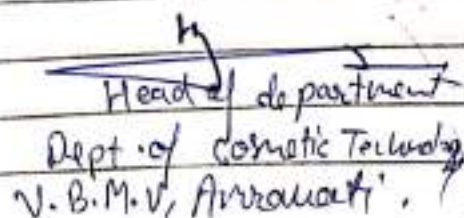 Head of department
Dept. of cosmetic Technology
V.B.M.V, Amravati.